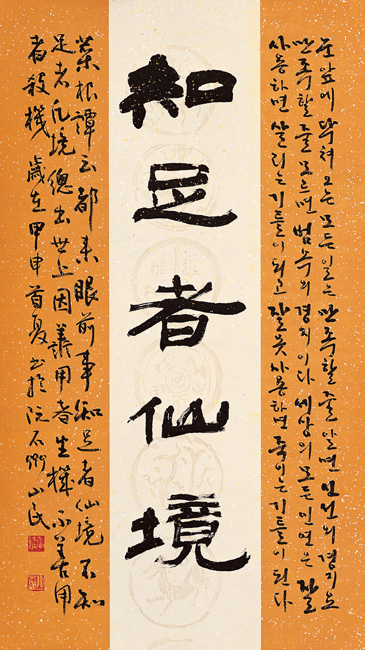 눈앞에 닥쳐 오는 모든 일은 만족할 줄 알면 신선의 경지요
만족할 줄 모르면 범속의 경지이다 세상의 모든 인연은 잘
사용하면 살리는 기틀이 되고 잘못 사용하면 죽이는 기틀이 된다
知足者仙境
菜根譚云都來眼前事知足者仙境不知
足者凡境總出世上因善用者生機不善用
者殺機歲在甲申首夏書於 山民